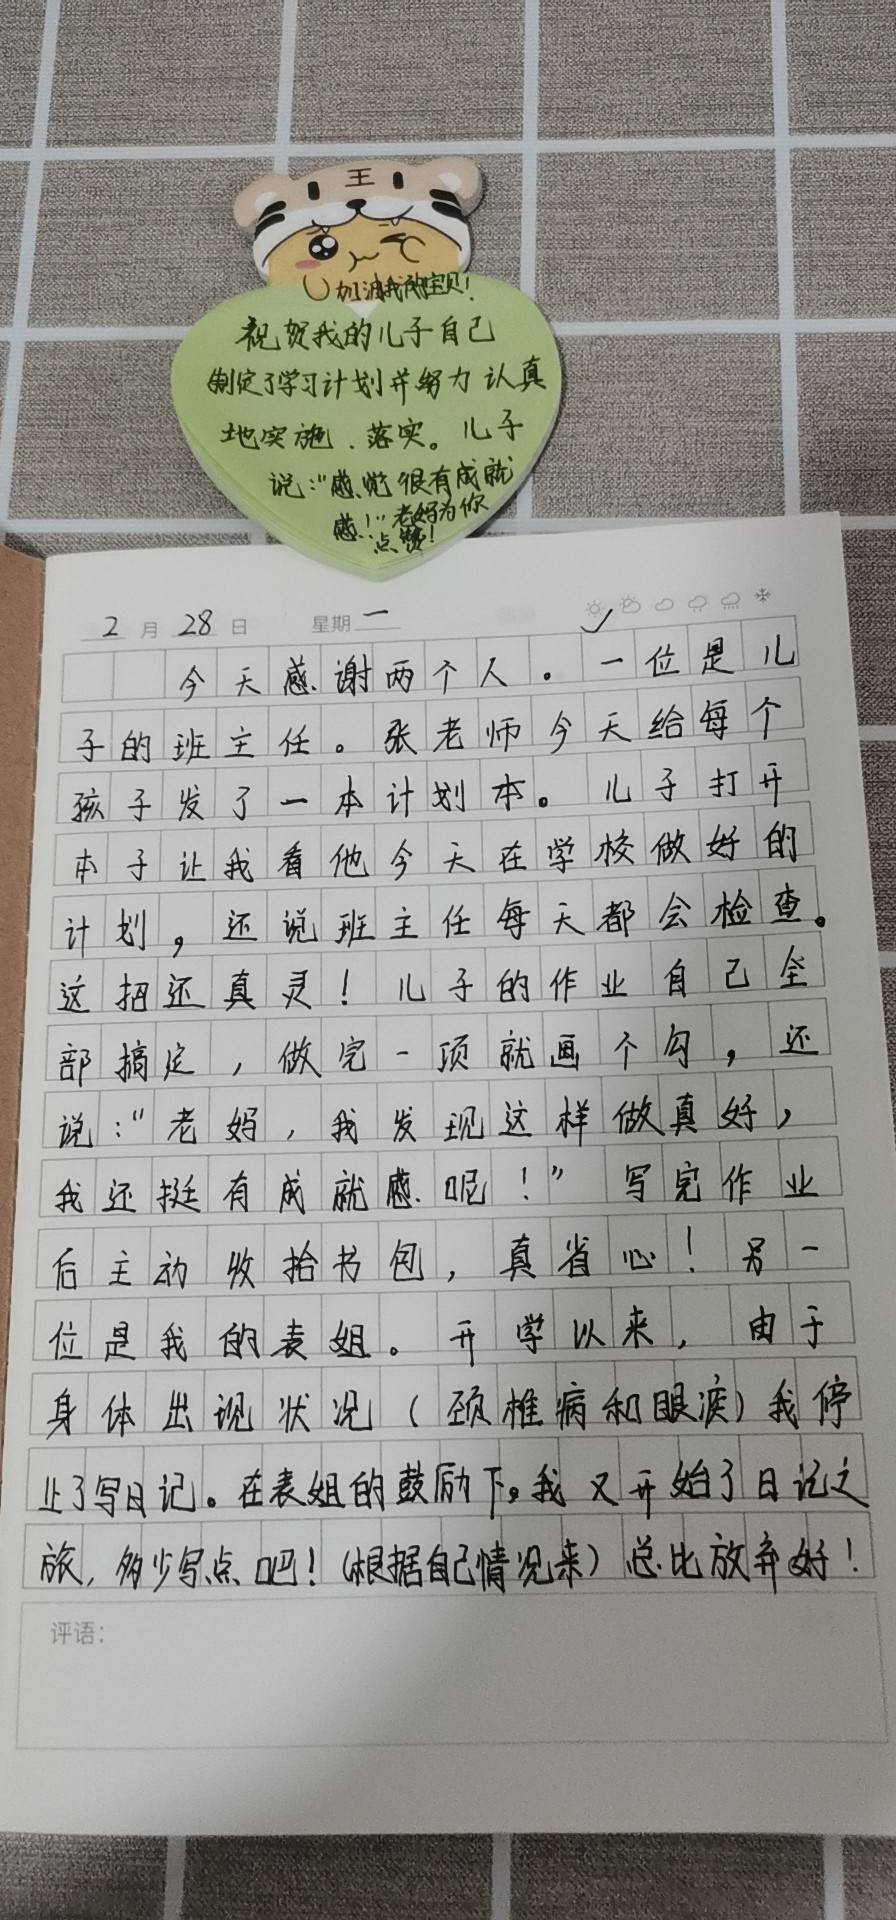 王
加油我的宝贝！
祝贺我的儿子自己
制定了学习计划并努力认真
地实施、落实。儿子
说：“感觉很有成就
感！”老妈为你
点赞！
2月28日 星期一
今天感谢两个人。一位是儿
子的班主任。张老师今天给每个
孩子发了一本计划本。儿子打开
本子让我看他今天在学校做好的
计划，还说班主任每天都会检查。
这招还真灵！儿子的作业自己全
部搞定，做完一项就画个勾，还
说：“老妈，我发现这样做真好，
我还挺有成就感呢！”写完作业
后主动收拾书包，真省心！另一
位是我的表姐。开学以来，由于
身体出现状况（颈椎病和眼涙）我停
止了写日记。在表姐的鼓励下，我又开始了日记之
旅，多少写点吧！（根据自己情况来）总比放弃好！
评语：